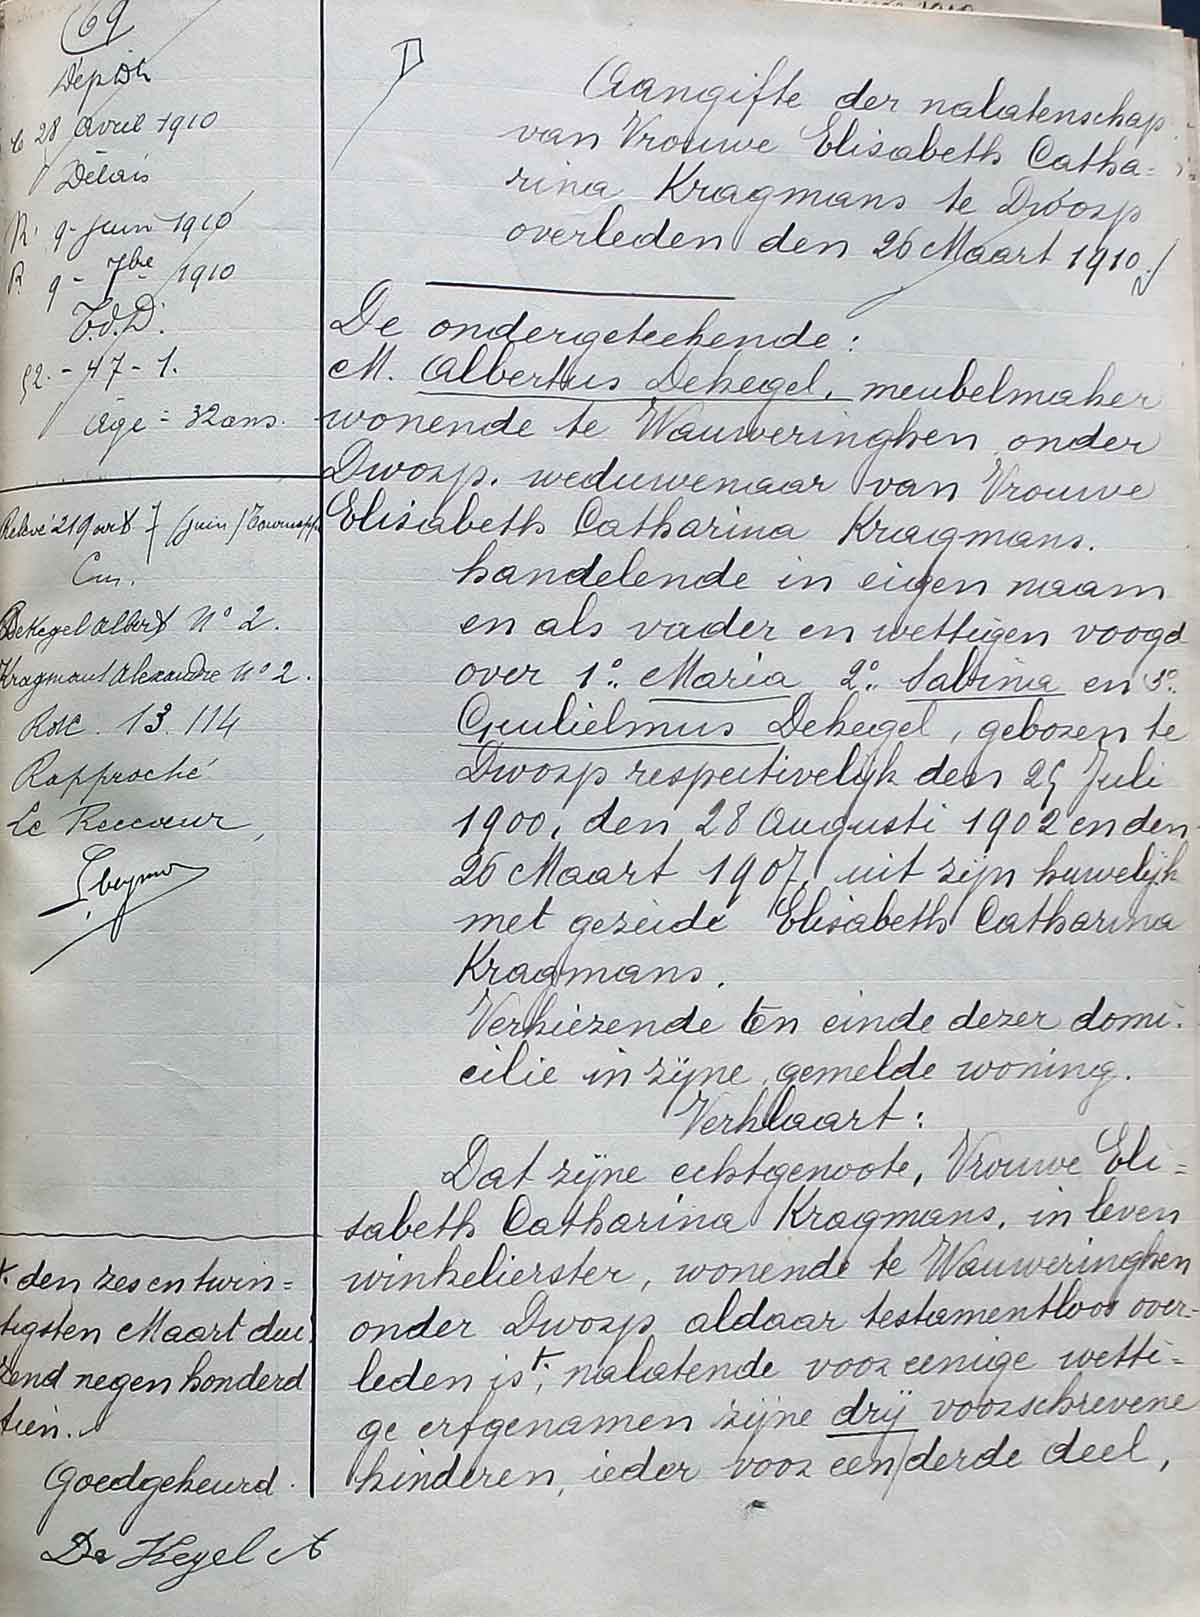 69
Dépôt
28 avril 1910
Délais
R. 9 - juin 1910
R. 9 - 7bre 1910
T.d.D.
52. - 47 - 1.
Age = 32 ans.
Relevé 219
Cm.
DeKegel Albert N° 2.
Kragmans Alexandre N° 2.
13. 114
Rapproché
Le Receveur,
t. den zes en twin=
tigsten Maart dui
zend negen honderd
tien.
Goedgekeurd.
De Kegel A
Aangifte der nalatenschap
van Vrouwe Elisabeth Catha=
rina Kragmans te Dworp
overleden den 26 Maart 1910.
De ondergeteekende:
M. Albertus Dekegel, meubelmaker
wonende te Wauweringhen onder
Dworp, weduwenaar van Vrouwe
Elisabeth Catharina Kragmans.
handelende in eigen naam
en als vader en wettigen voogd
over 1°. Maria 2°. Sabina en 3°.
Gulielmus Dekegel, geboren te
Dworp respectivelijk den 25 Juli
1900, den 28 Augusti 1902 en den
26 Maart 1907, uit zijn huwelijk
met gezeide Elisabeth Catharina
Kragmans.
Verkiezende ten einde dezer domi-
cilie in zijne gemelde woning.
Verklaart:
Dat zijne echtgenoote, Vrouwe Eli=
sabeth Catharina Kragmans, in leven
winkelierster, wonende te Wauweringhen
onder Dworp aldaar testamentloos over-
leden is t., nalatende voor eenige wetti=
ge erfgenamen zijne drij voorschrevene
kinderen, ieder voor een derde deel,